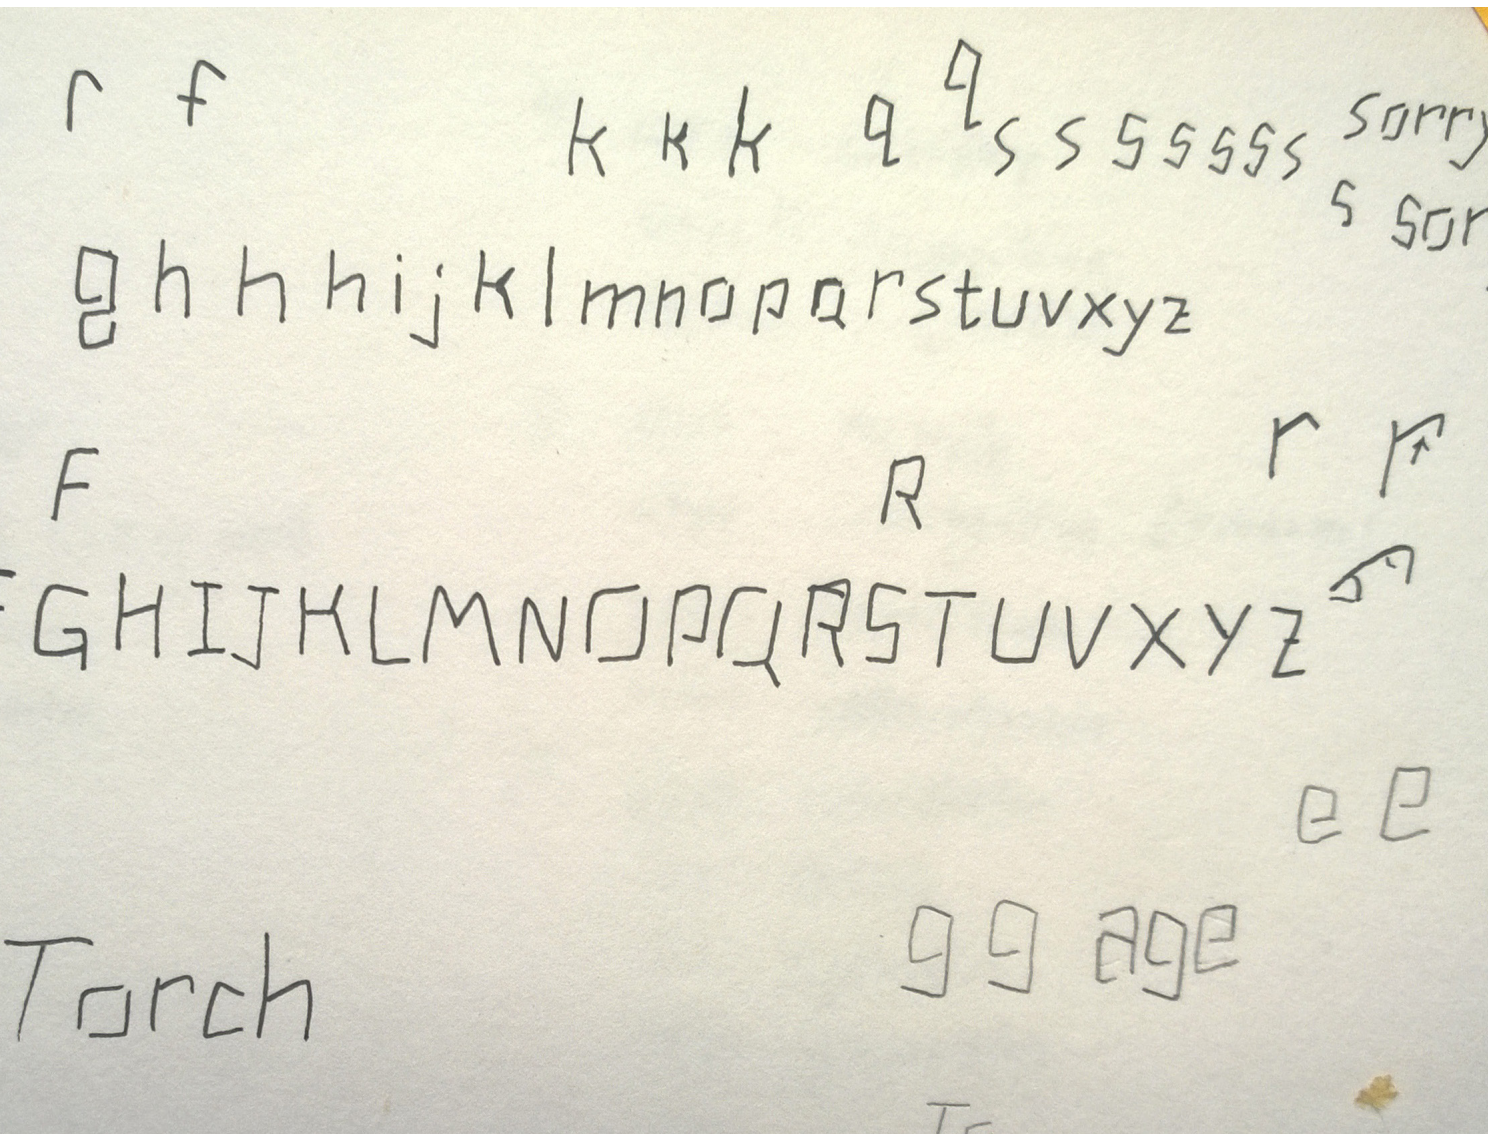 r f k k k q q s s s s s s s s sorry
s sor
g h h h i j k l m n o p q r s t u v x y z
r r
F R
G H I J K L M N O P Q R S T U V X Y Z
e e
g g age
Torch